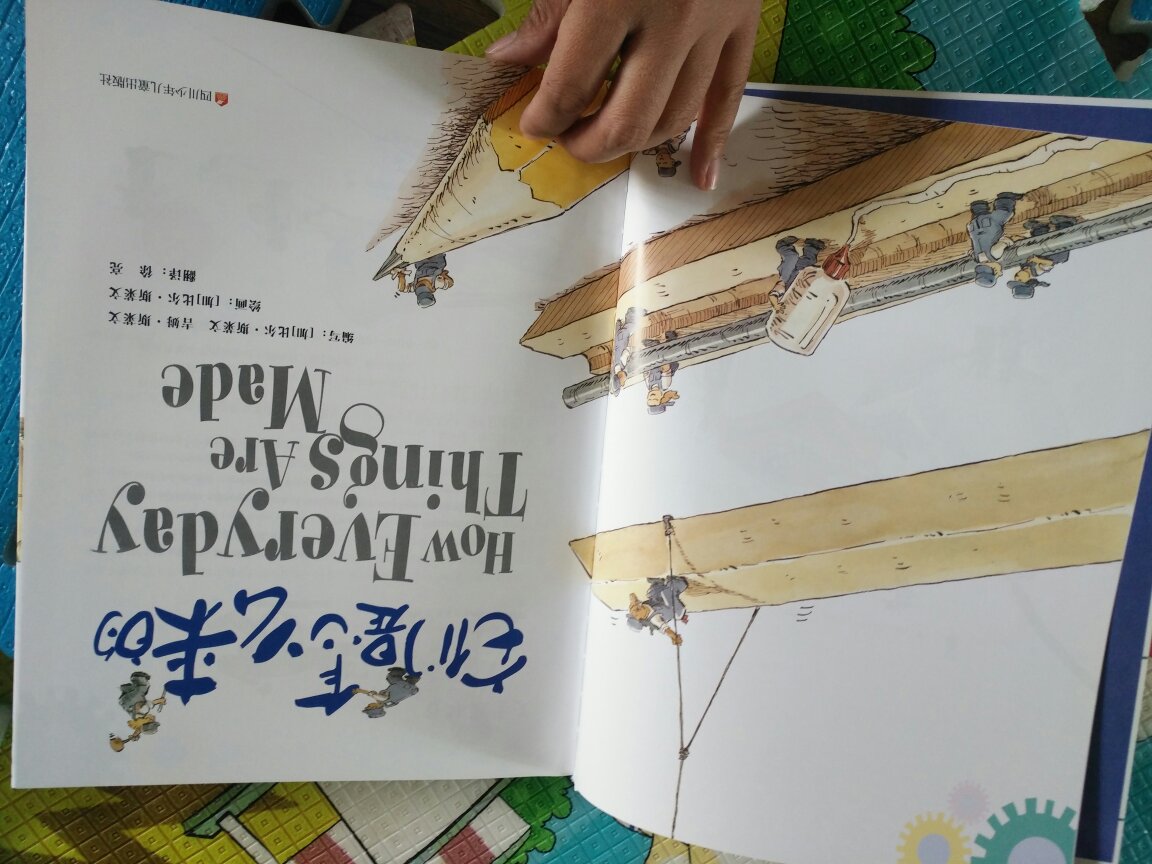 它们是怎么来的
How Everyday
Things Are
Made
编写：[加]比尔·斯莱文 吉姆·斯莱文
绘画：[加]比尔·斯莱文
翻译：徐 亮
四川少年儿童出版社